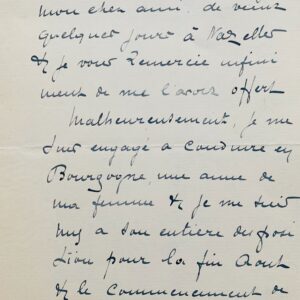 mon cher ami, de venir
quelques jours à Nazelles
& je vous remercie infini
ment de me l'avoir offert
Malheureusement, je me
suis engagé à conduire en
Bourgogne, une amie de
ma femme & je me suis
mis à son entière disposi
tion pour la fin Août
& le commencement de